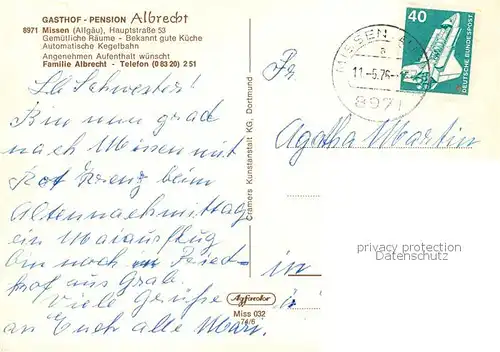 GASTHOF - PENSION Albrecht
8971 Missen (Allgäu), Hauptstraße 53
Gemütliche Räume - Bekannt gute Küche
Automatische Kegelbahn
Angenehmen Aufenthalt wünscht
Familie Albrecht - Telefon (0 83 20) 2 51
Lb Schwester!
Bin nun grad
nach Missen mit
Rot Kreuz beim
Altennachmittag
ein Maiausflug
Bin noch Fried-
hof aus Grab.
Viele Grüße
an Euch alle Mari.
Cramers Kunstanstalt KG, Dortmund
MISSEN
a
11.-5.76
8971
40
DEUTSCHE BUNDESPOST
Fr.
Agatha Martin
privacy protection
Datenschutz
in
Agfacolor
Miss 032
74/6